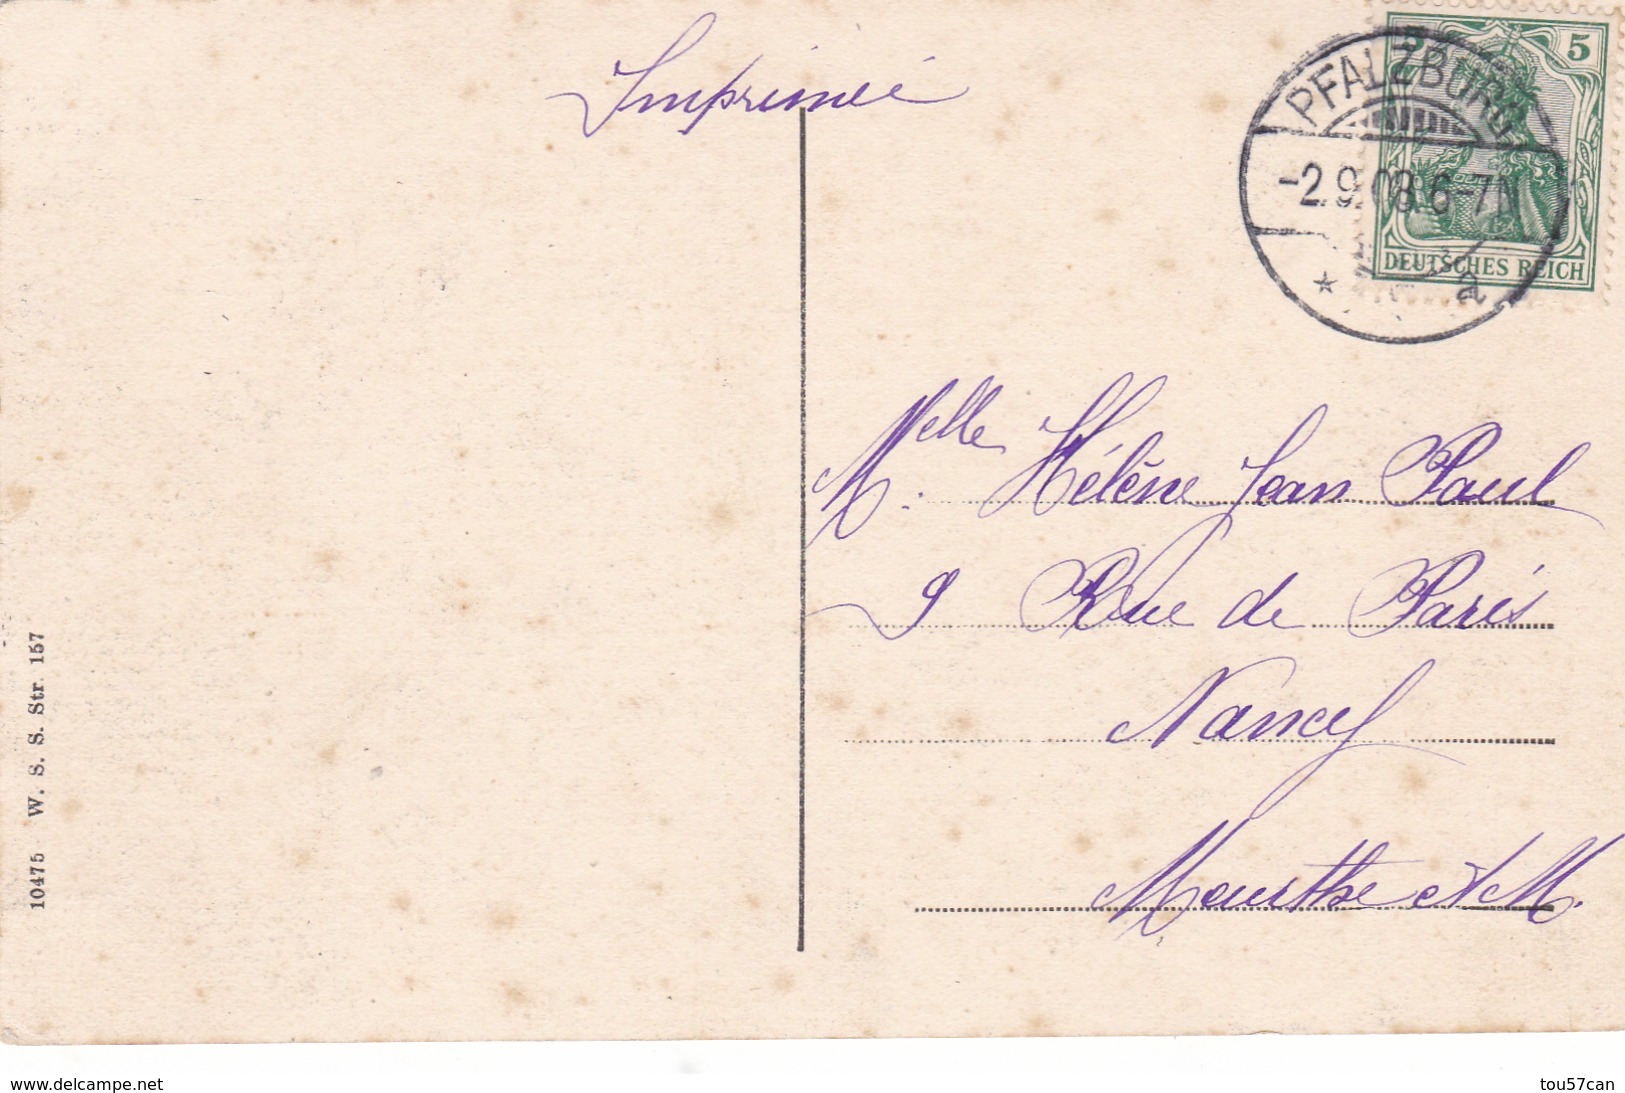 Imprimée
5 5
DEUTSCHES REICH
PFALZBURG
-2.9.08.6-7N
* a
Melle. Hélène Jean Paul
9 Rue de Paris
Nancy
Meurthe et M.
10475 W. S. S. Str. 157
www.delcampe.net
tou57can